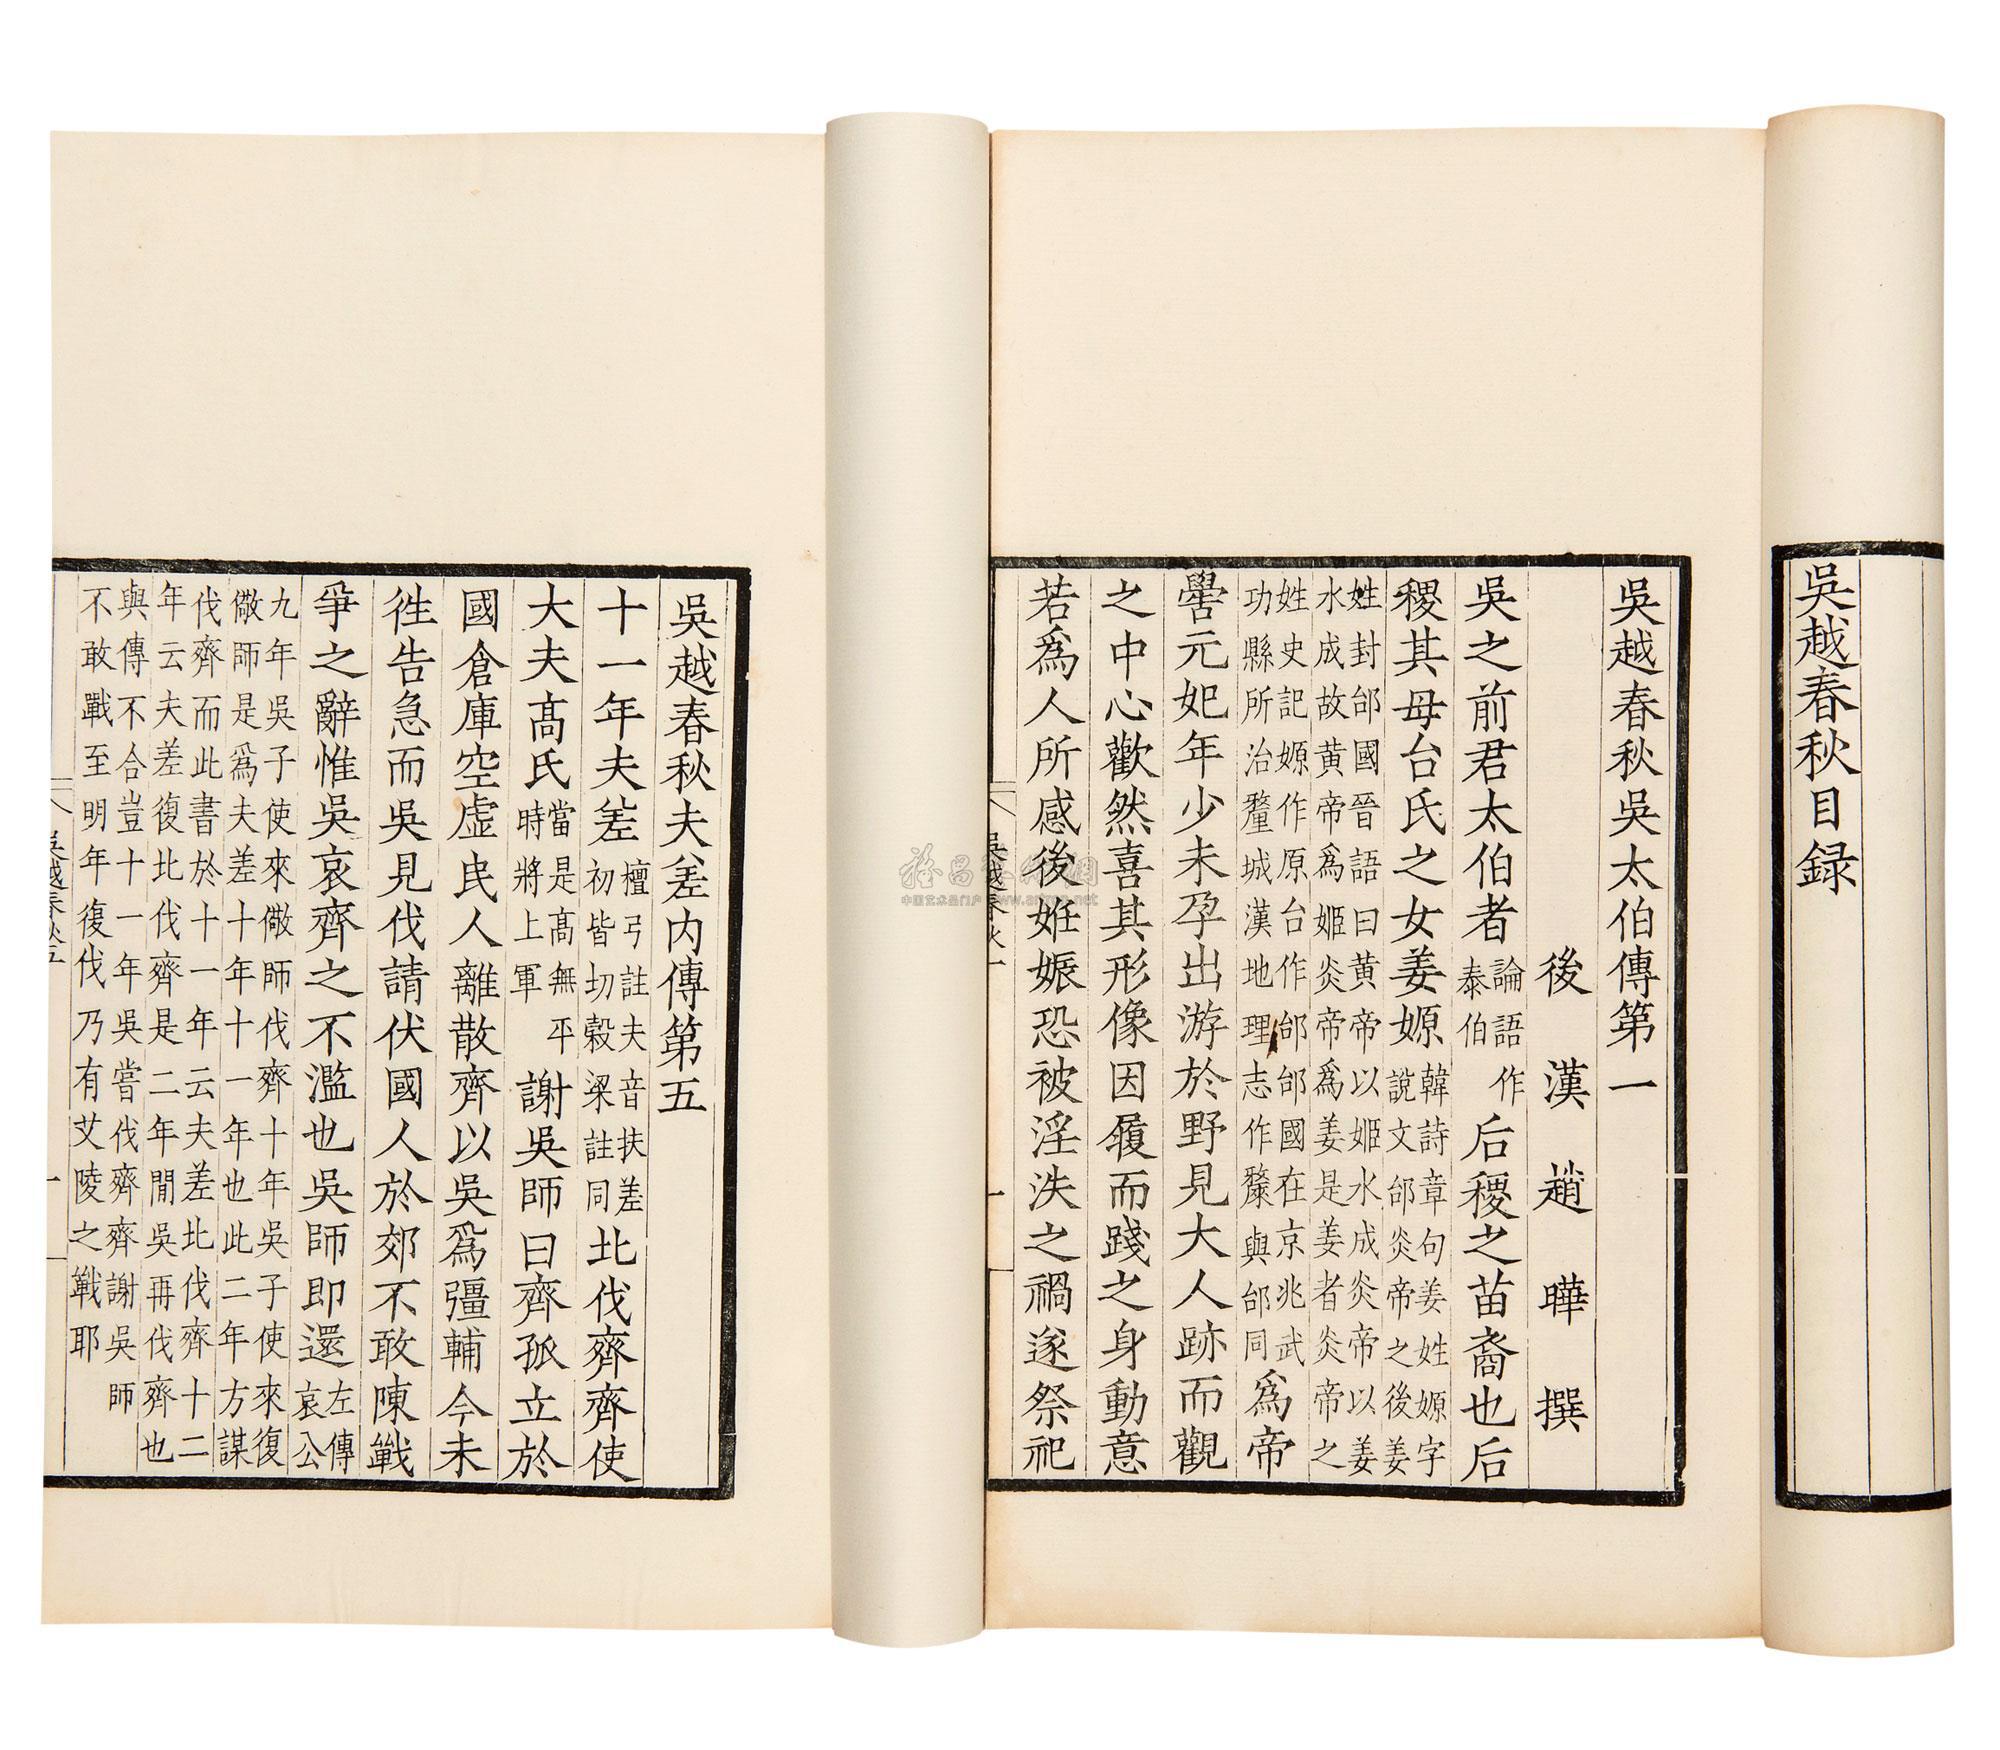 吳越春秋目録
吳越春秋吳太伯傳第一
後漢趙曄撰
吳之前君太伯者論語作泰伯后稷之苗裔也后
稷其母台氏之女姜嫄韓詩章句姜姓嫄字說文邰炎帝之後姜
姓封邰國晉語曰黄帝以姬水成炎帝以姜
水成故黄帝爲姬炎帝爲姜是姜者炎帝之
姓史記嫄作原台作邰邰國在京兆武
功縣所治釐城漢地理志作斄與邰同爲帝
嚳元妃年少未孕出游於野見大人跡而觀
之中心歡然喜其形像因履而踐之身動意
若爲人所感後姙娠恐被淫泆之禍遂祭祀
吳越春秋一
一
吳越春秋夫差内傳第五
十一年夫差檀弓註夫音扶差初皆切穀梁註同北伐齊齊使
大夫髙氏當是髙無平時將上軍謝吳師曰齊孤立於
國倉庫空虚民人離散齊以吳爲彊輔今未
徃告急而吳見伐請伏國人於郊不敢陳戰
爭之辭惟吳哀齊之不濫也吳師即還左傳哀公
九年吳子使來儆師伐齊十年吳子使來復
儆師是爲夫差十年十一年也此二年方謀
伐齊而此書於十一年云夫差北伐齊十二
年云夫差復北伐齊是二年閒吳再伐齊也
與傳不合豈十一年吳嘗伐齊齊謝吳師
不敢戰至明年復伐乃有艾陵之戰耶
吳越春秋五
一
中国艺术品门户 www.artron.net